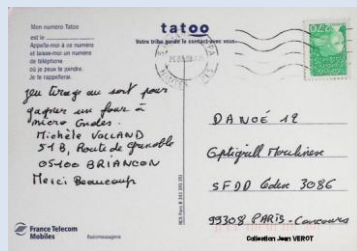 Mon numéro Tatoo
est le
Appelle-moi à ce numéro
et laisse-moi un numéro
de téléphone
où je peux te joindre.
Je te rappellerai.
tatoo
Votre tribu garde le contact avec vous
Jeu tirage au sort pour
gagner un four à
micro Ondes.
Michèle VOLLAND
51B, Route de Grenoble
05100 BRIANCON
Merci Beaucoup
DANOÉ 12
Optigrill Moulinex
SFDD Cedex 3086
99308 PARIS - Concours
France Telecom
Mobiles
Radiomessagerie
Collection Jean VEROT